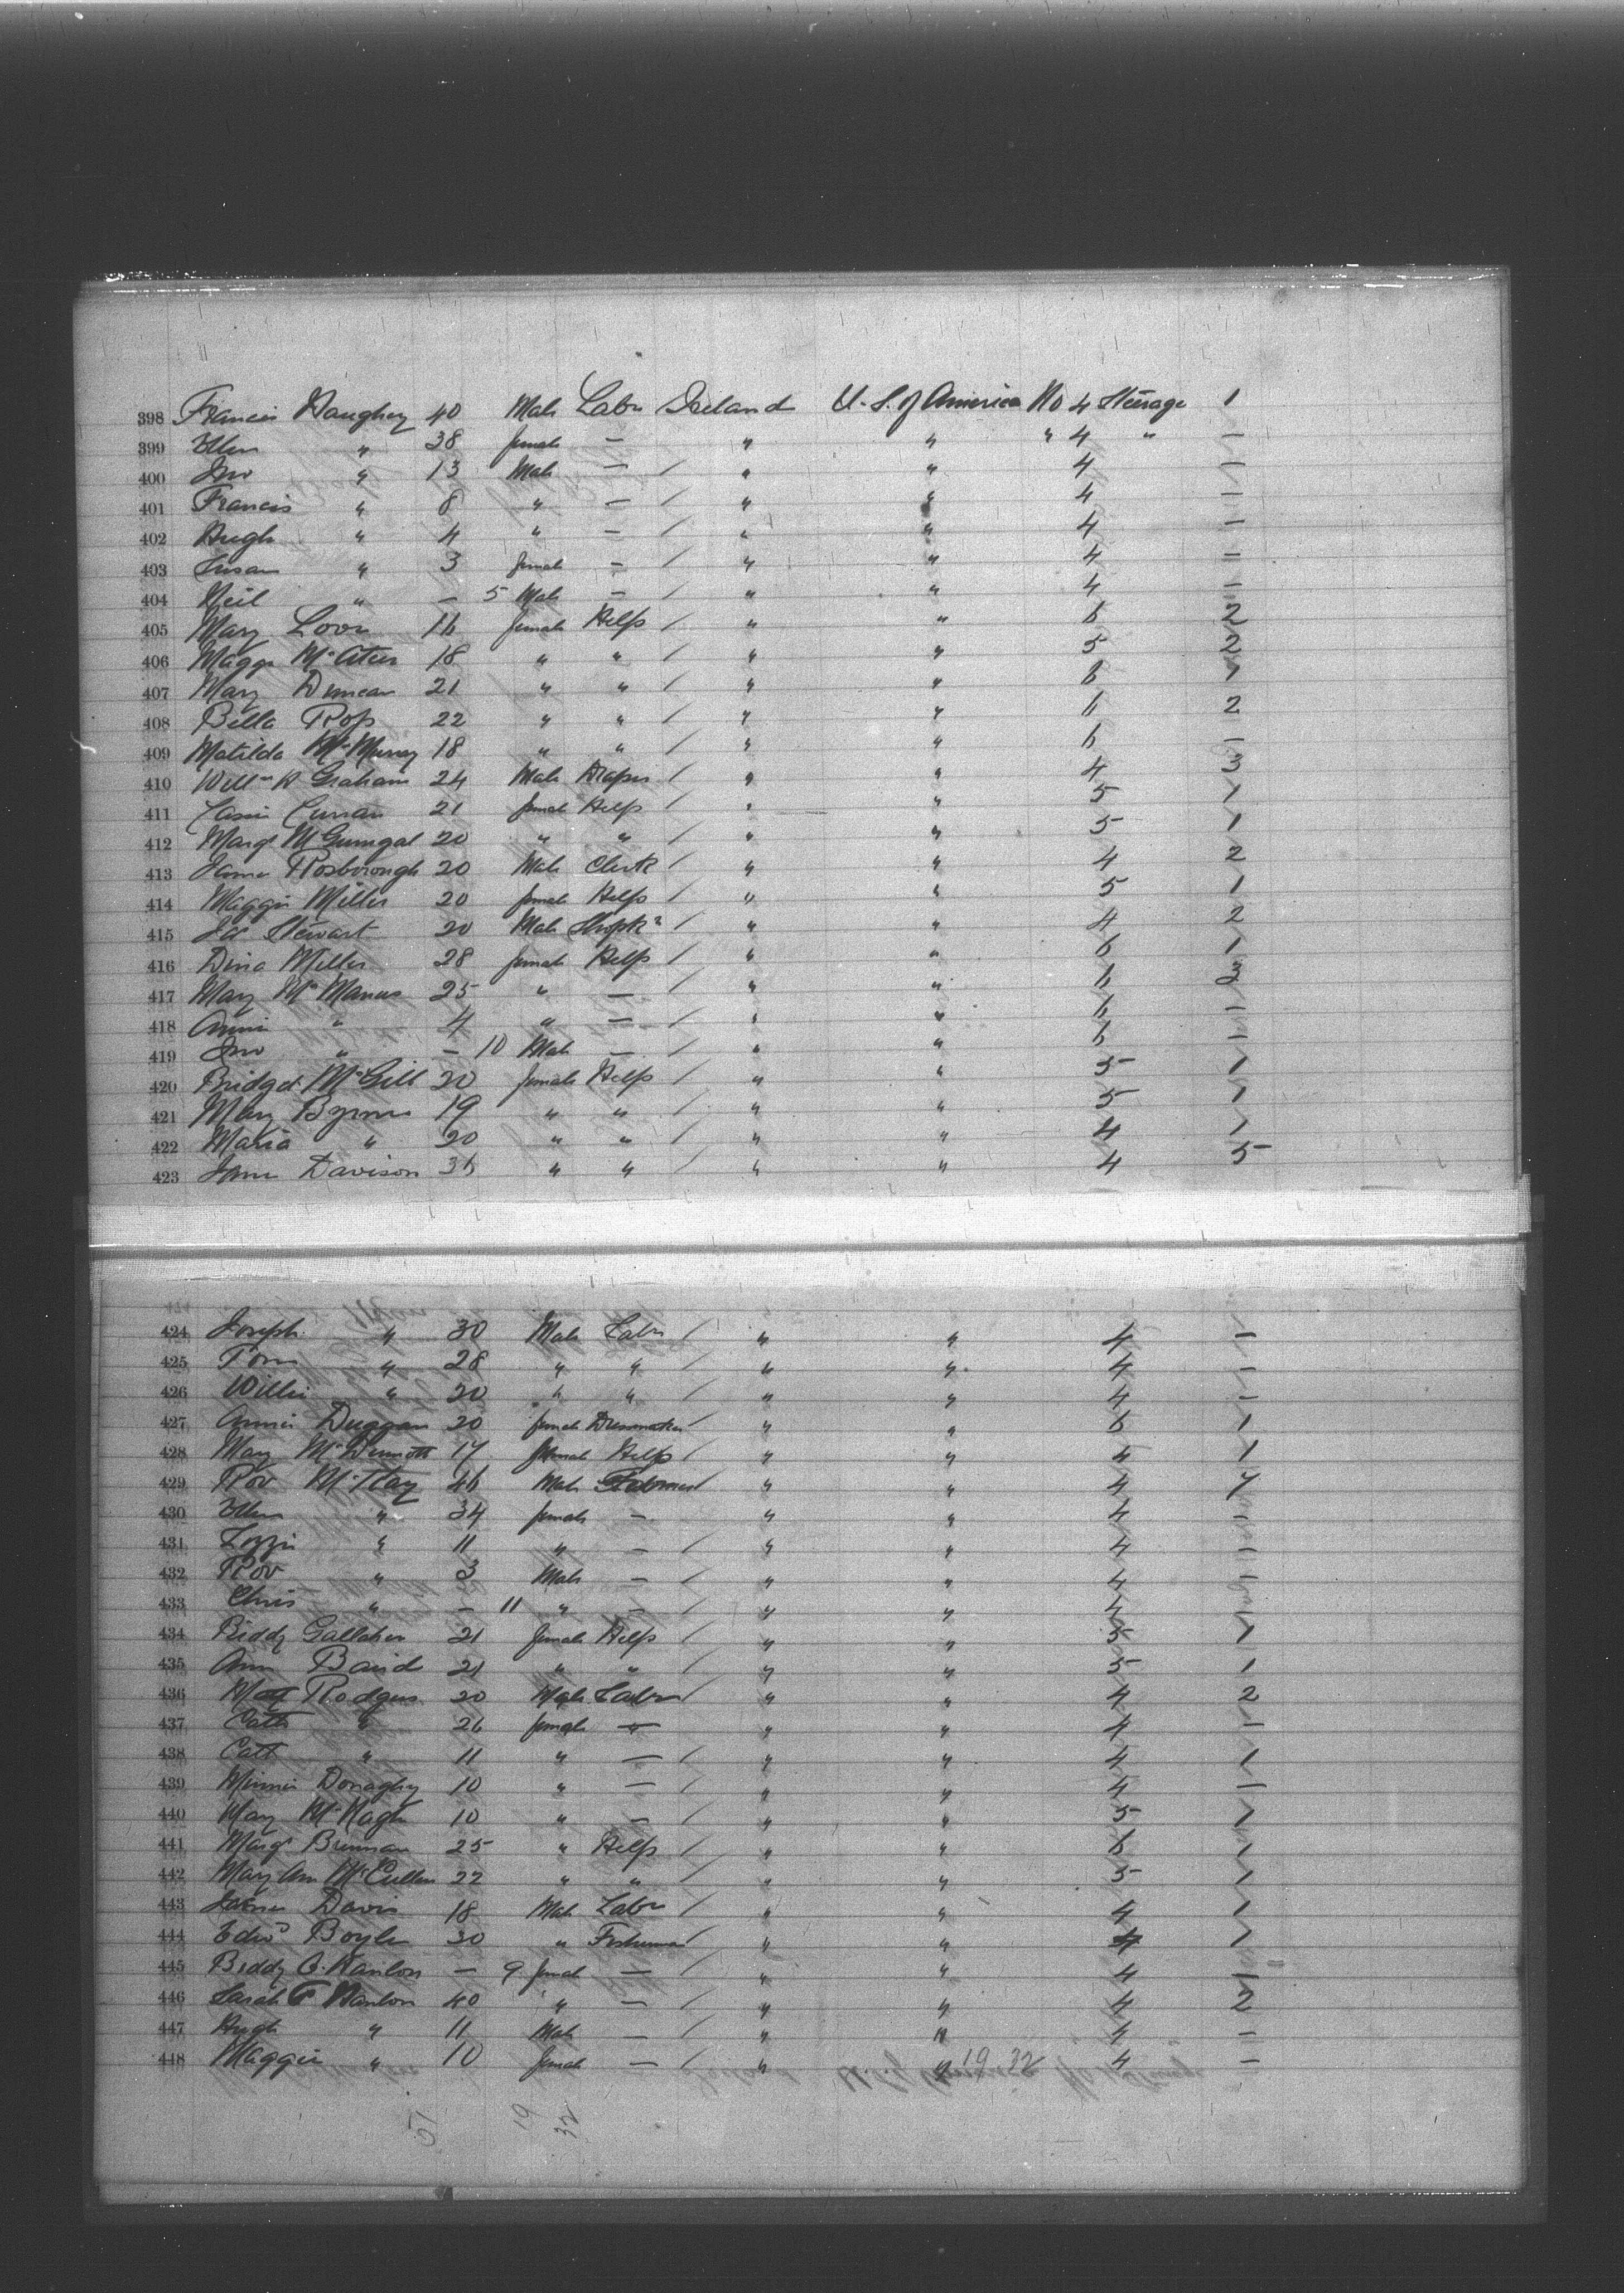 398 Francis Haughey 40 Male Labr Ireland U.S. of America No 4 Steerage 1
399 Ellen " 38 female — " " " 4 " —
400 Jno " 13 Male — / " " 4 —
401 Francis " 8 " — / " " 4 —
402 Hugh " 4 " — / " " 4 —
403 Susan " 3 female — / " " 4 —
404 Neil " — 5 Male — / " " 4 —
405 Mary Love 16 female Help / " " 6 2
406 Maggie McAteer 18 " " / " " 5 2
407 Mary Duncan 21 " " / " " 6 1
408 Bella Ross 22 " " / " " 6 2
409 Matilda McMurray 18 " " / " " 6 —
410 Willm R Graham 24 Male Draper / " " 4 3
411 Curran 21 female Help / " " 5 1
412 Margt 20 " " / " " 5 1
413 James Rosborough 20 Male Clerk / " " 4 2
414 Maggie Miller 20 female Help / " " 5 1
415 Jas Stewart 20 Male Shopkr / " " 4 2
416 Dina Miller 28 female Help / " " 6 1
417 Mary McManus 25 " — / " " 6 3
418 Annie " 4 " — / " " 6 —
419 Jno " — 10 Male — / " " 6 —
420 Bridget McGill 20 female Help / " " 5 1
421 Mary Byrne 19 " " / " " 5 1
422 Maria " 20 " " / " " 4 1
423 Jane Davison 36 " " / " " 4 5
424 Joseph " 30 Male Labr / " " 4 —
425 Tom " 28 " " / " " 4 —
426 Willie " 20 " " / " " 4 —
427 Annie Duggan 20 female Dressmaker / " " 6 1
428 Mary McDermott 17 female Help / " " 4 1
429 Rob McKay 46 Male " " 4 7
430 Ellen " 34 female — " " 4 —
431 Lizzie " 11 " — / " " 4 —
432 Rob " 3 Male — / " " 4 —
433 Chris " — 11 " — / " " 4
434 Biddy Gallaher 21 female Help / " " 5 1
435 Ann Baird 21 " " / " " 5 1
436 Rodgers 20 Male Labr " " 4 2
437 Cath " 26 female — " " 4 —
438 Cath " 11 " — / " " 4 1
439 Minnie Donaghy 10 " — / " " 4 —
440 Mary 10 " — / " " 5 1
441 Margt Brennan 25 " Help / " " 6 1
442 Mary Ann McCullen 22 " " / " " 5 1
443 James Davis 18 Male Labr / " " 4 1
444 Edwd Boyle 30 " Fisherman / " " 4 1
445 Biddy O. Hanlon — 9 female — / " " 4 —
446 Sarah Hanlon 40 " — / " " 4 2
447 Hugh " 11 Male — / " " 4 —
448 Maggie " 10 female — / " " 19 32 4 —
51 19 32